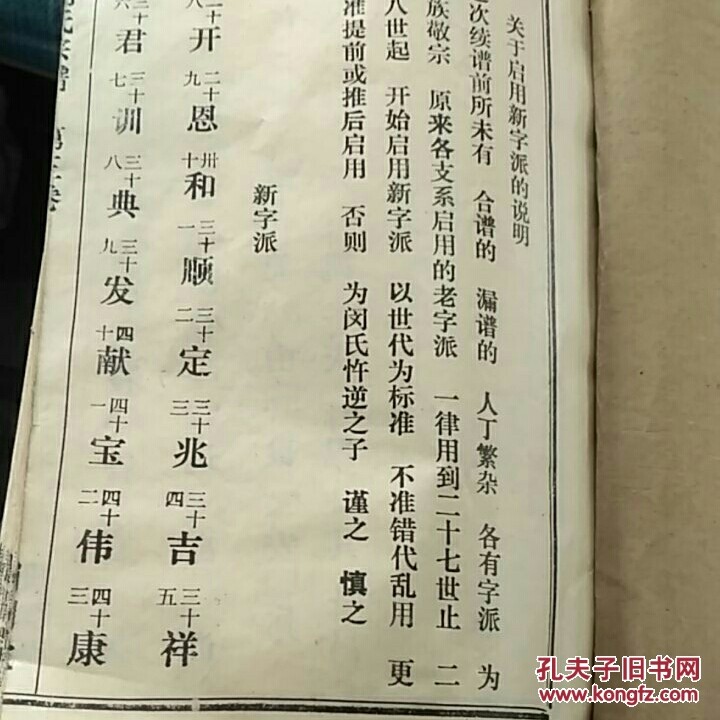 关于启用新字派的说明
次续谱前所未有 合谱的 漏谱的 人丁繁杂 各有字派 为
族敬宗 原来各支系启用的老字派 一律用到二十七世止 二
八世起 开始启用新字派 以世代为标准 不准错代乱用 更
准提前或推后启用 否则 为闵氏忤逆之子 谨之 慎之
新字派
二十八 开 二十九 恩 卅十 和 三十一 顺 三十二 定 三十三 兆 三十四 吉 三十五 祥
三十六 君 三十七 训 三十八 典 三十九 发 四十 献 四十一 宝 四十二 伟 四十三 康
孔夫子旧书网
www.kongfz.com